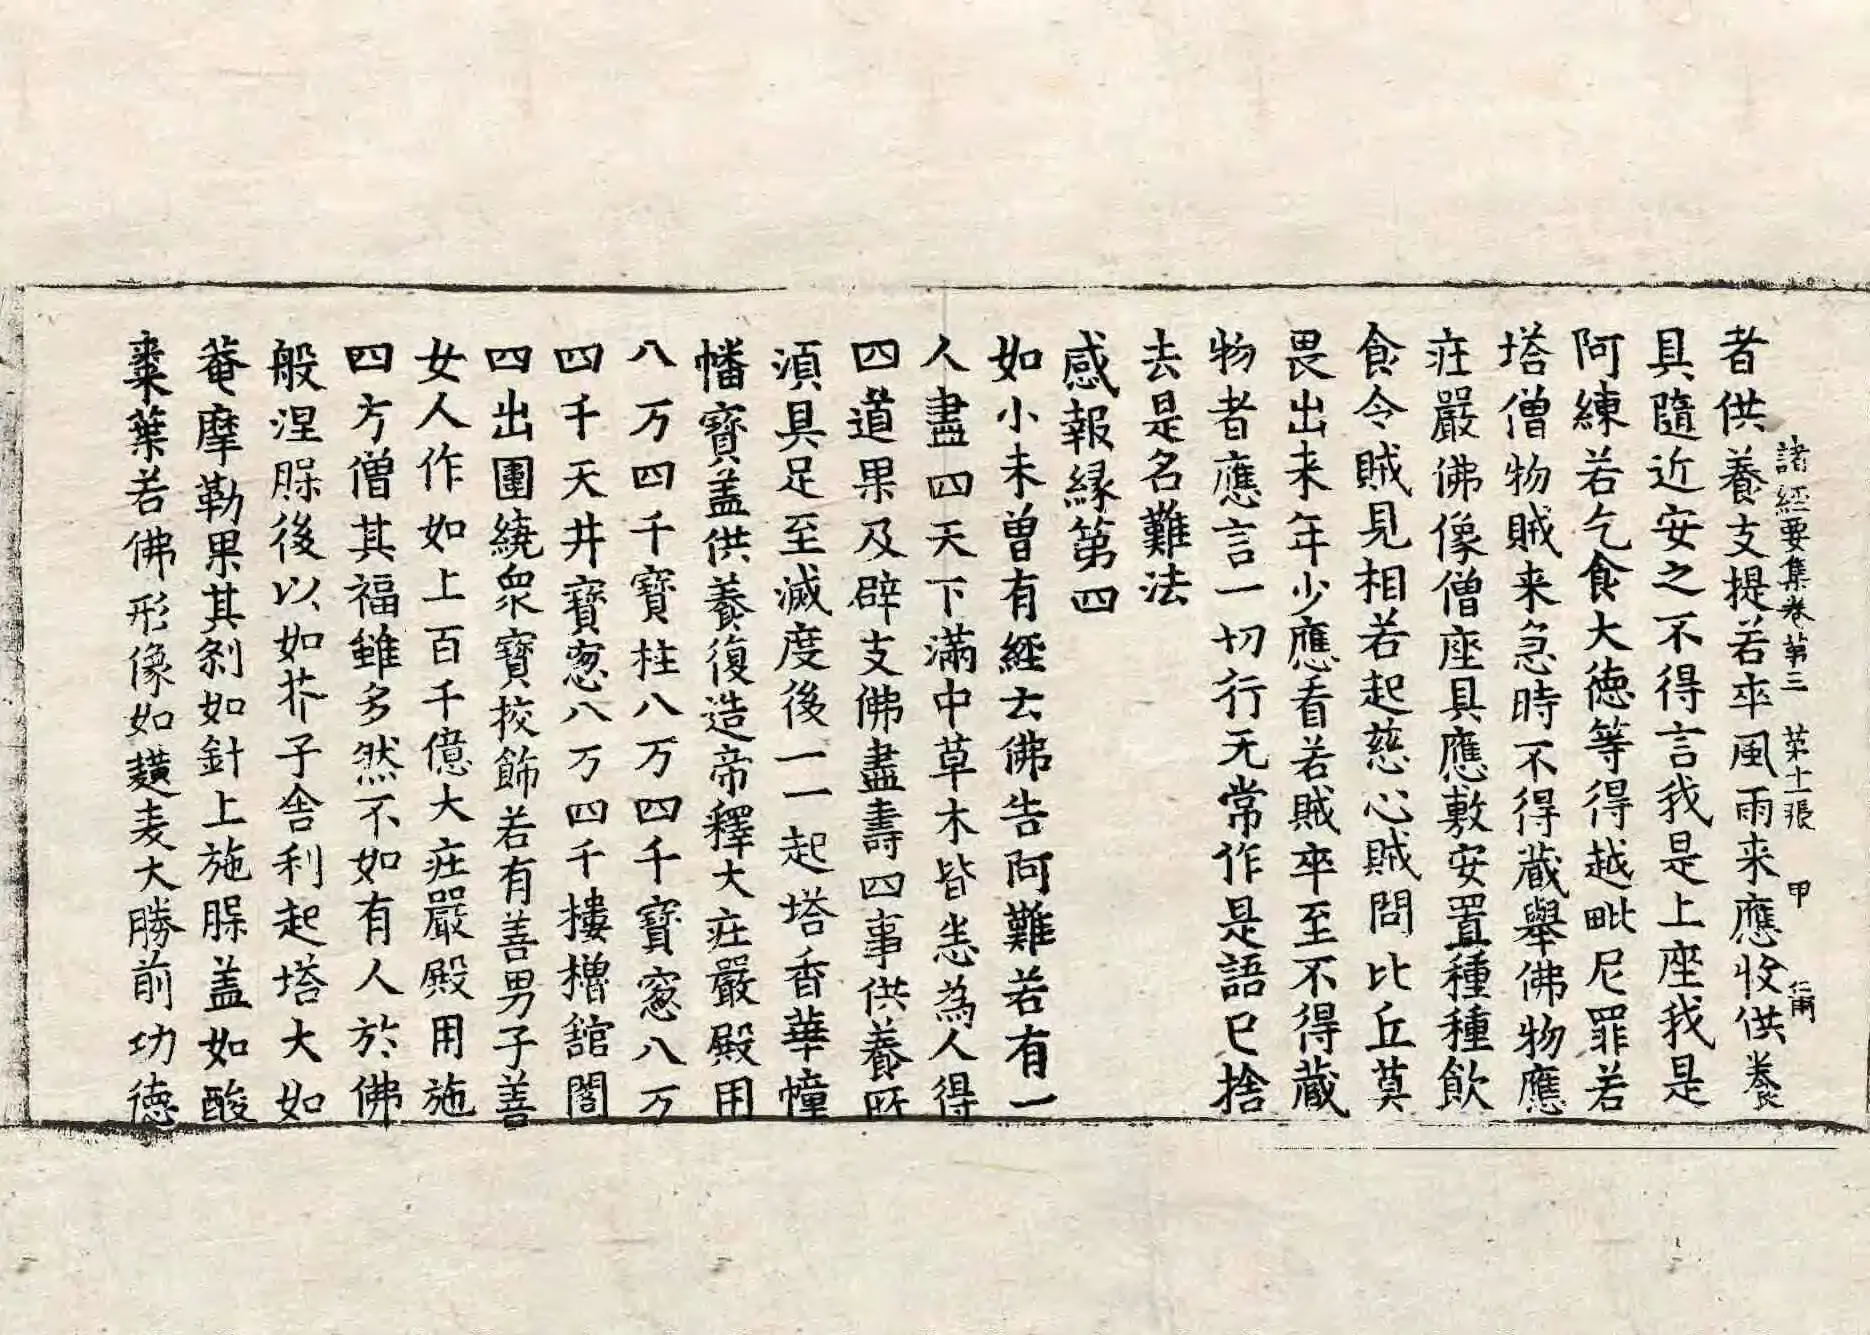 諸經要集卷第三　第十一張　甲
者供養支提若卒風雨来應收供養
具隨近安之不得言我是上座我是
阿練若乞食大德等得越毗尼罪若
塔僧物賊来急時不得藏舉佛物應
疘嚴佛像僧座具應敷安置種種飲
食令賊見相若起慈心賊問比丘莫
畏出来年少應看若賊卒至不得藏
物者應言一切行无常作是語已捨
去是名難法
感報縁第四
如小未曾有經云佛告阿難若有一
人盡四天下滿中草木皆悉為人得
四道果及辟支佛盡壽四事供養所
湏具足至滅度後一一起塔香華幢
幡寶盖供養復造帝釋大疘嚴殿用
八万四千寶柱八万四千寶窓八万
四千天井寶窓八万四千摟櫓舘閣
四出圍繞衆寶挍飾若有善男子善
女人作如上百千億大疘嚴殿用施
四方僧其福雖多然不如有人於佛
般涅䐗後以如芥子舍利起塔大如
菴摩勒果其刹如針上施䐗盖如酸
棗葉若佛形像如䵃麦大勝前功德